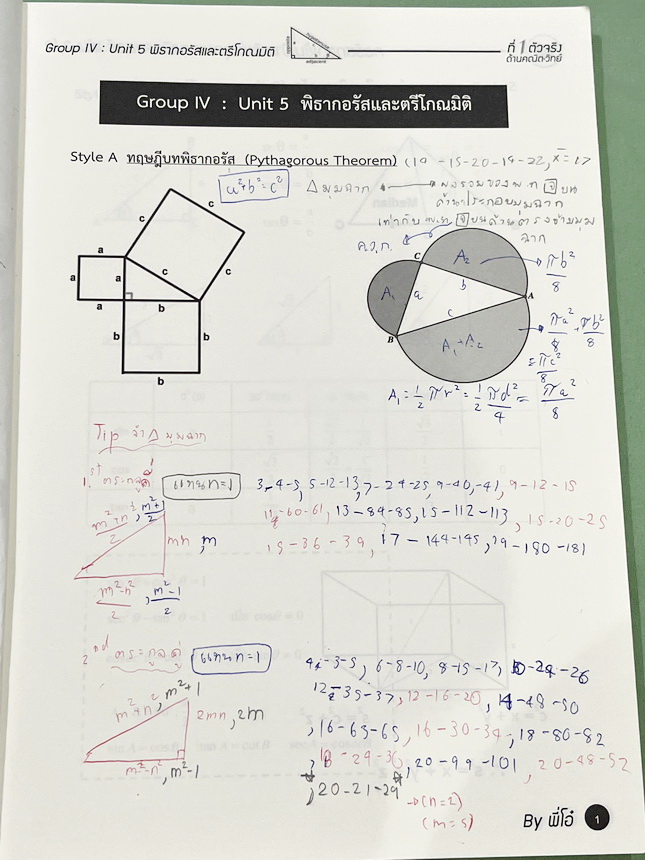 Group IV : Unit 5 พิธากอรัสและตรีโกณมิติ
ที่ 1 ตัวจริง
ด้านคณิต-วิทย์
Group IV : Unit 5 พิธากอรัสและตรีโกณมิติ
Style A ทฤษฎีบทพิธากอรัส (Pythagorous Theorem)
a²+b²=c²
Δ มุมฉาก → ผลรวมของ พ.ท จ บน
ด้านประกอบมุมฉาก
เท่ากับ พ.ท จ บนด้านตรงข้ามมุม
ฉาก
c
c
c
c
a
a
a
a
b
b
b
b
A₂
C
A₁
a
b
c
A
B
A₁+A₂
πb²/8
πa²/8 + πb²/8
= πc²/8
A₁ = ½πr² = ½ πd²/4 = πa²/8
Tip จำ Δ มุมฉาก
1. st ตระกูลคี่
แทน n=1
m²+n²/2, m²+1/2
mn, m
m²-n²/2, m²-1/2
3-4-5, 5-12-13, 7-24-25, 9-40-41, 9-12-15
11-60-61, 13-84-85, 15-112-113, 15-20-25
15-36-39, 17-144-145, 19-180-181
2 nd ตระกูลคู่
แทน n=1
m²+n², m²+1
2mn, 2m
m²-n², m²-1
4-3-5, 6-8-10, 8-15-17, 10-24-26
12-35-37, 12-16-20, 14-48-50
, 16-63-65, 16-30-34, 18-80-82
, 20-99-101, 20-48-52
, 20-21-29 → (n=2)
(m=5)
By พี่โอ๋ 1